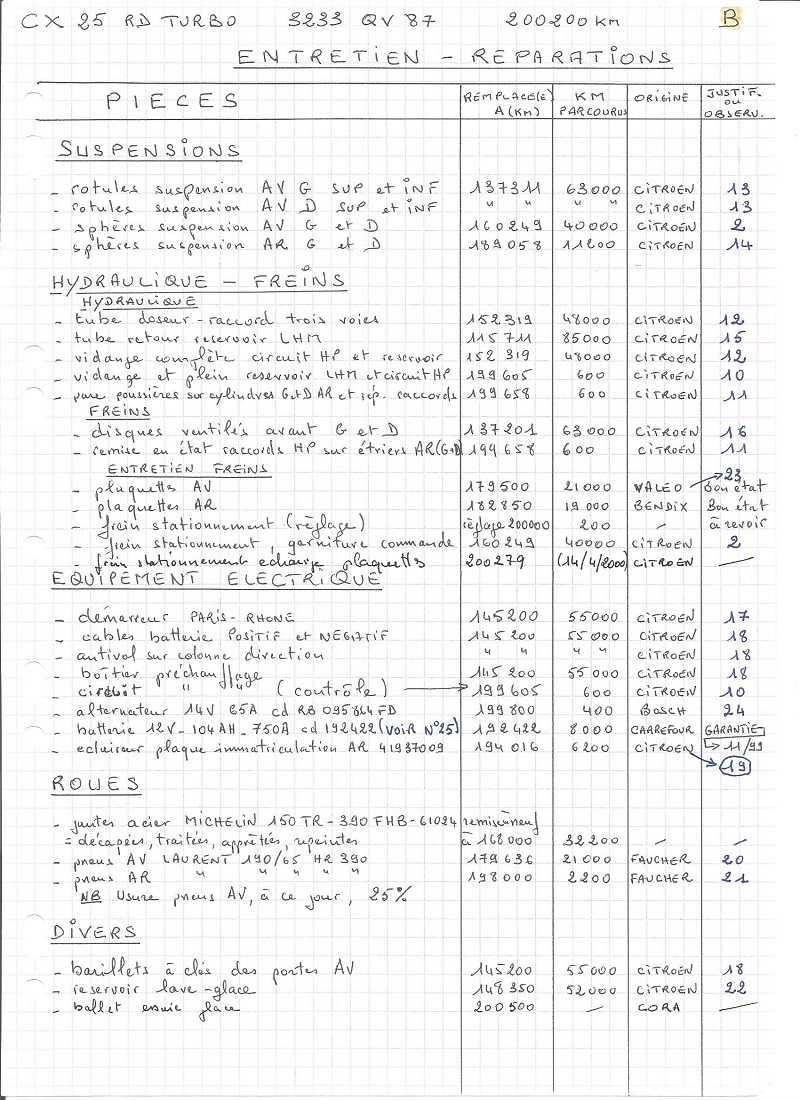 CX 25 RD TURBO 3233 QV 87 200200 km B
ENTRETIEN - REPARATIONS
PIECES REMPLACE(E) A (Km) KM PARCOURUS ORIGINE JUSTIF. OU OBSERV.
SUSPENSIONS
- rotules suspension AV G SUP et INF 137311 63000 CITROEN 13
- rotules suspension AV D SUP et INF " " " " CITROEN 13
- sphères suspension AV G et D 160249 40000 CITROEN 2
- sphères suspension AR G et D 189058 11200 CITROEN 14
HYDRAULIQUE - FREINS
HYDRAULIQUE
- tube doseur - raccord trois voies 152319 48000 CITROEN 12
- tube retour reservoir LHM 115711 85000 CITROEN 15
- vidange complète circuit HP et reservoir 152319 48000 CITROEN 12
- vidange et plein reservoir LHM et circuit HP 199605 600 CITROEN 10
- pare poussières sur cylindres G et D AR et rép. raccords 199658 600 CITROEN 11
FREINS
- disques ventilés avant G et D 137201 63000 CITROEN 16
- remise en état raccords HP sur étriers AR (G+D) 199658 600 CITROEN 11
ENTRETIEN FREINS 23
- plaquettes AV 179500 21000 VALEO bon état
- plaquettes AR 182850 19000 BENDIX Bon état
- frein stationnement (réglage) réglage 200000 200 - à revoir
- frein stationnement, garniture commande 160249 40000 CITROEN 2
- frein stationnement echange plaquettes 200279 (14/4/2000) CITROEN —
EQUIPEMENT ELECTRIQUE
- démarreur PARIS-RHONE 145200 55000 CITROEN 17
- cables batterie POSITIF et NEGATIF 145200 55000 CITROEN 18
- antivol sur colonne direction " " " " CITROEN 18
- boîtier préchauffage 145200 55000 CITROEN 18
- circuit " (contrôle) 199605 600 CITROEN 10
- alternateur 14V 65A cd RB 095864 FD 199800 400 BOSCH 24
- batterie 12V - 104AH - 750A cd 192422 (VOIR N°25) 192422 8000 CARREFOUR GARANTIE
- eclaireur plaque immatriculation AR 41937009 194016 6200 CITROEN 11/99
19
ROUES
- jantes acier MICHELIN 150 TR - 390 FHB - 61024 remise à neuf
= décapées, traitées, apprêtées, repeintes à 168000 32200 - -
- pneus AV LAURENT 190/65 HR 390 179636 21000 FAUCHER 20
- pneus AR " " " " 198000 2200 FAUCHER 21
NB Usure pneus AV, à ce jour, 25%
DIVERS
- barillets à clés des portes AV 145200 55000 CITROEN 18
- reservoir lave-glace 148350 52000 CITROEN 22
- ballet essuie glace 200500 - CORA —